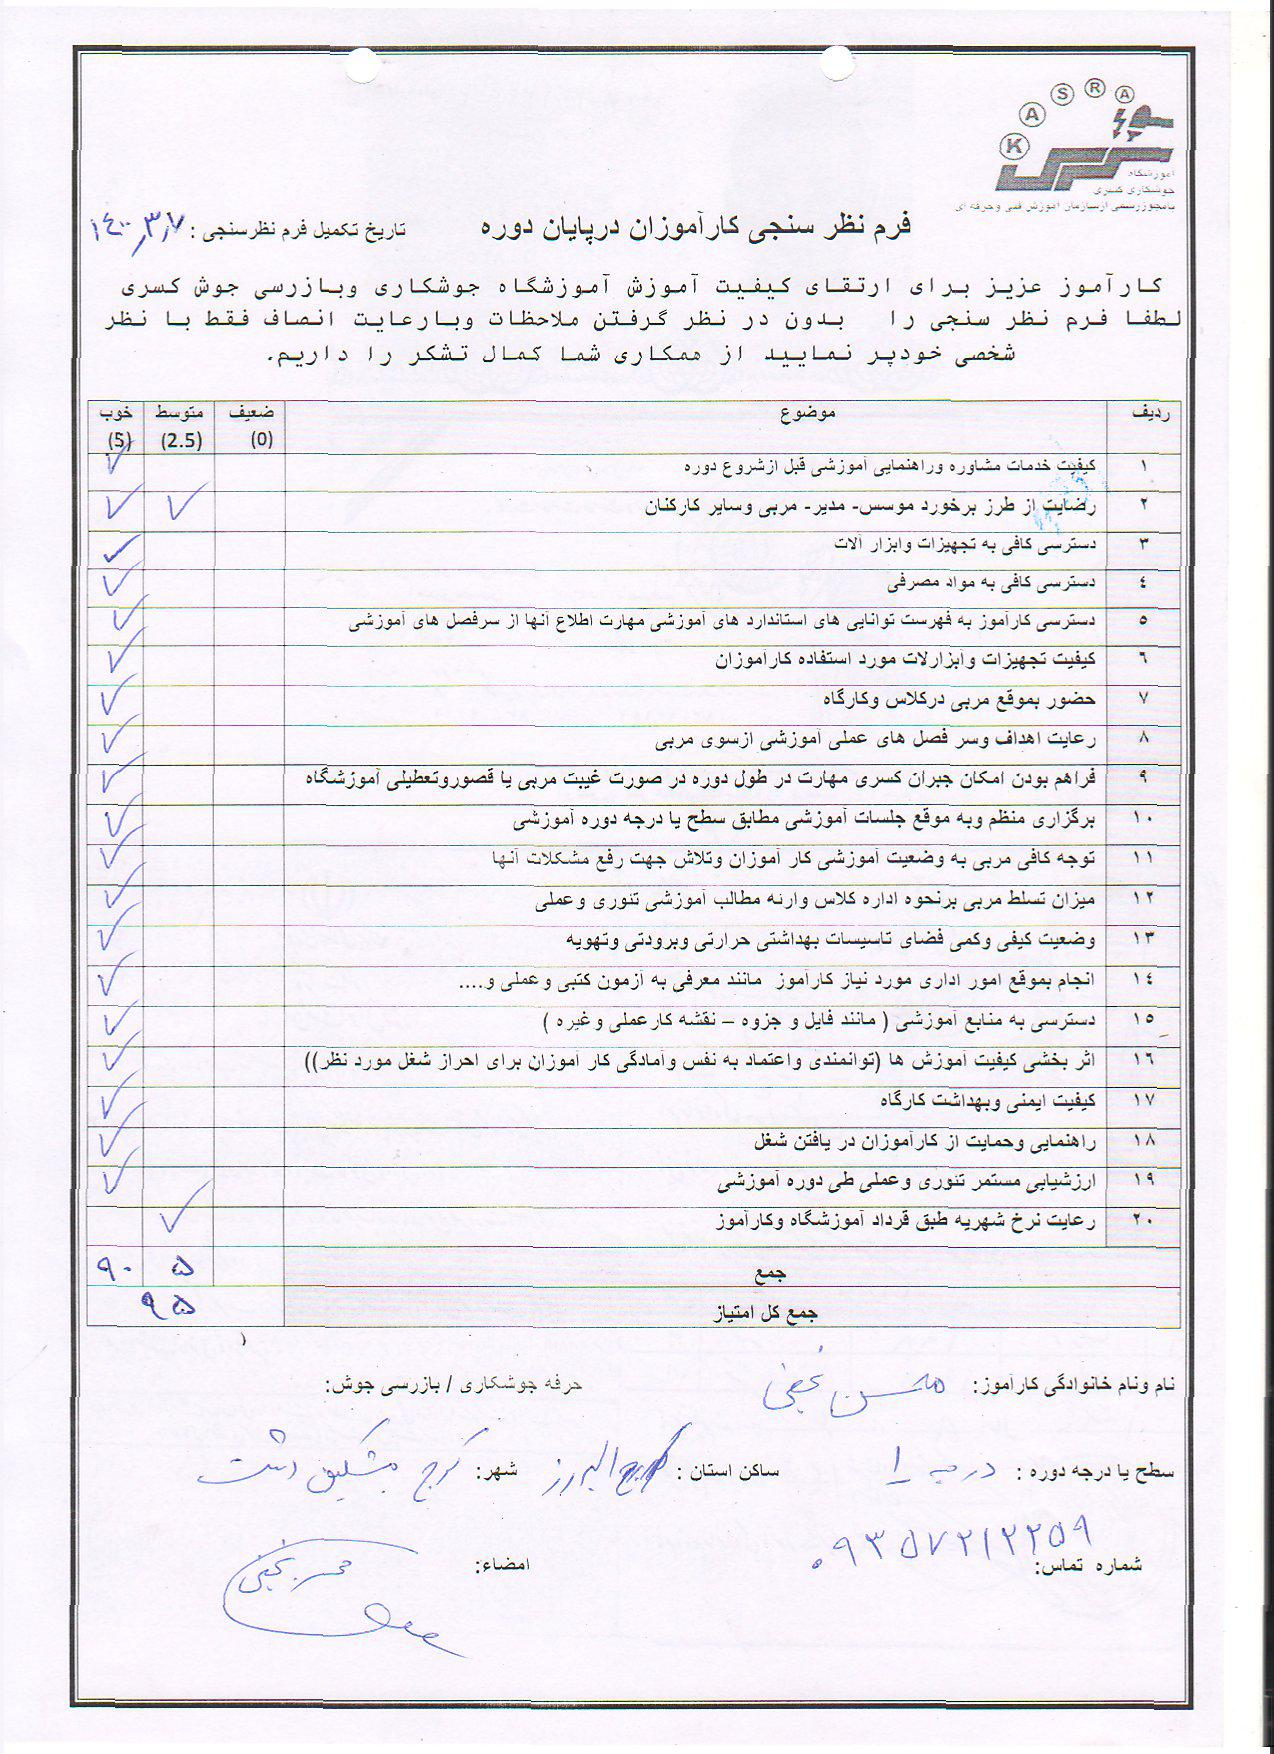 K A S R A
آموزشگاه
جوشکاری کسری
بامجوزرسمی ازسازمان آموزش فنی وحرفه ای
فرم نظر سنجی کارآموزان درپایان دوره تاریخ تکمیل فرم نظرسنجی : ۱۴۰۰,۳,۷
کارآموز عزیز برای ارتقای کیفیت آموزش آموزشگاه جوشکاری وبازرسی جوش کسری
لطفا فرم نظر سنجی را بدون در نظر گرفتن ملاحظات وبارعایت انصاف فقط با نظر
شخصی خودپر نمایید از همکاری شما کمال تشکر را داریم.
ردیف موضوع ضعیف (0) متوسط (2.5) خوب (5)
۱ کیفیت خدمات مشاوره وراهنمایی آموزشی قبل ازشروع دوره ✓
۲ رضایت از طرز برخورد موسس- مدیر- مربی وسایر کارکنان ✓ ✓
۳ دسترسی کافی به تجهیزات وابزار آلات ✓
٤ دسترسی کافی به مواد مصرفی ✓
۵ دسترسی کارآموز به فهرست توانایی های استاندارد های آموزشی مهارت اطلاع آنها از سرفصل های آموزشی ✓
٦ کیفیت تجهیزات وابزارلات مورد استفاده کارآموزان ✓
۷ حضور بموقع مربی درکلاس وکارگاه ✓
۸ رعایت اهداف وسر فصل های عملی آموزشی ازسوی مربی ✓
۹ فراهم بودن امکان جبران کسری مهارت در طول دوره در صورت غیبت مربی یا قصوروتعطیلی آموزشگاه ✓
۱۰ برگزاری منظم وبه موقع جلسات آموزشی مطابق سطح یا درجه دوره آموزشی ✓
۱۱ توجه کافی مربی به وضعیت آموزشی کار آموزان وتلاش جهت رفع مشکلات آنها ✓
۱۲ میزان تسلط مربی برنحوه اداره کلاس وارئه مطالب آموزشی تئوری وعملی ✓
۱۳ وضعیت کیفی وکمی فضای تاسیسات بهداشتی حرارتی وبرودتی وتهویه ✓
۱٤ انجام بموقع امور اداری مورد نیاز کارآموز مانند معرفی به آزمون کتبی وعملی و.... ✓
۱۵ دسترسی به منابع آموزشی ( مانند فایل و جزوه – نقشه کارعملی وغیره ) ✓
۱٦ اثر بخشی کیفیت آموزش ها (توانمندی واعتماد به نفس وآمادگی کار آموزان برای احراز شغل مورد نظر)) ✓
۱۷ کیفیت ایمنی وبهداشت کارگاه ✓
۱۸ راهنمایی وحمایت از کارآموزان در یافتن شغل ✓
۱۹ ارزشیابی مستمر تئوری وعملی طی دوره آموزشی ✓
۲۰ رعایت نرخ شهریه طبق قرداد آموزشگاه وکارآموز ✓
جمع ۵ ۹۰
جمع کل امتیاز ۹۵
نام ونام خانوادگی کارآموز: محسن نجفی حرفه جوشکاری / بازرسی جوش:
سطح یا درجه دوره : درجه ۱ ساکن استان : البرز شهر: کرج مشکین دشت
شماره تماس: ۰۹۳۵۷۲۱۲۲۵۹ امضاء: محسن نجفی